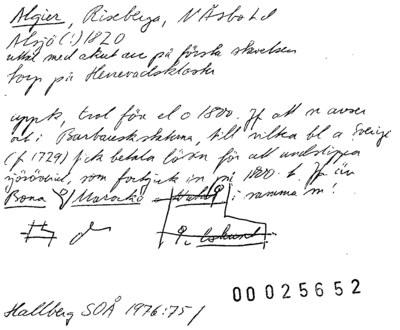 Algier, Riseberga, N Åsbo hd
Alsjö (!) 1820
uttal med akut acc på första stavelsen
torp på Herrevadskloster
uppk, trol före el o 1800. Jf att n avser
ort i Barbareskstaterna, till vilka bl a Sverige
(f 1729) fick betala lösen för att undslippa
sjöröveri, som fortgick in på 1800-t. Jf äv
Bona o Marocko i samma sn!
Hallberg SOÅ 1976:75 f
00025652